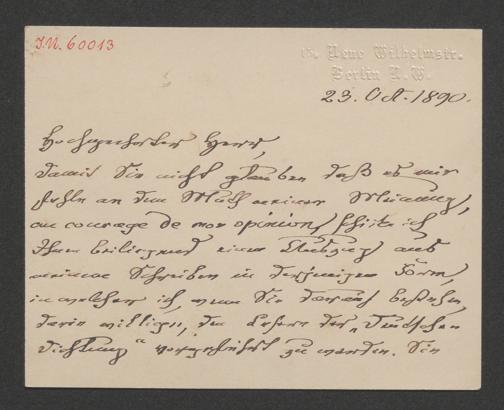 J.N. 60013
15. Neue Wilhelmstr.
Berlin N.W.
23. Oct. 1890.
Hochgeehrter Herr,
damit Sie nicht glauben daß es mir
fehle an dem Muth meiner Meinung,
au courage de mon opinion, schicke ich
Ihnen beiliegend einen Auszug aus
meinem Schreiben in derjenigen Form,
in welcher ich, wenn Sie darauf bestehen,
darin willige, den Lesern der „Deutschen
Dichtung“ vorgeführt zu werden. Die